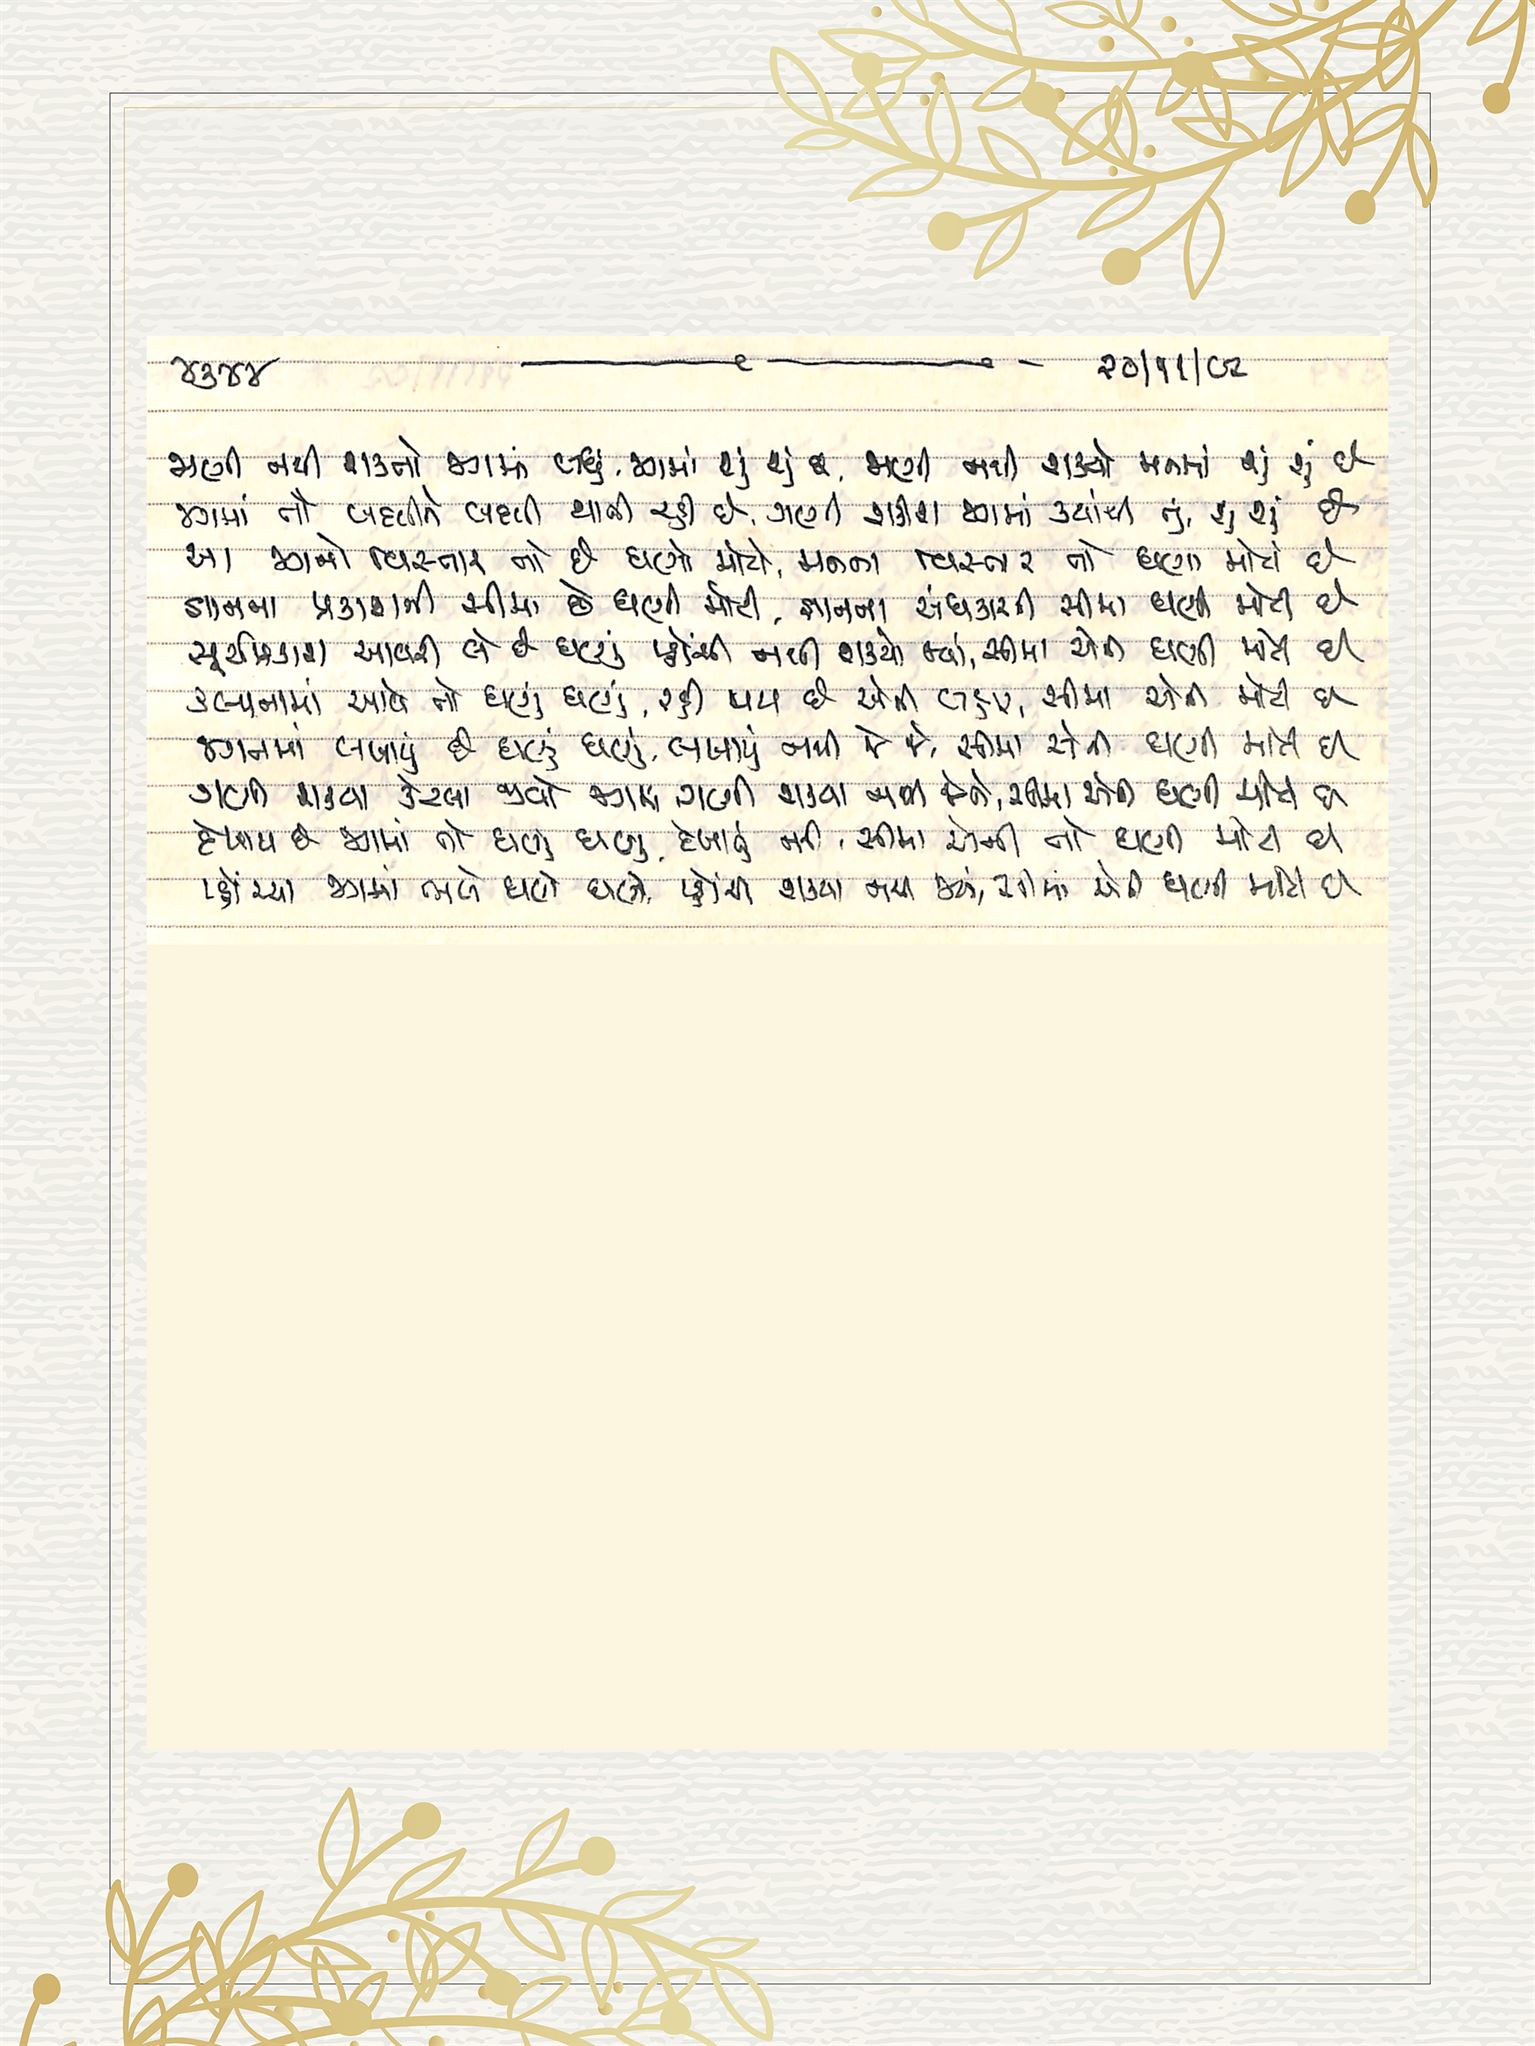 ૪૩૪૪ ૨૦/૧૧/૯૨
જાણી નથી શકતો જગમાં બધું, જગમાં શું શું છે, જાણી નથી શક્યો મનમાં શું શું છે
જગમાં તો બદલીને બદલી થાતી રહી છે, ગણી શકીશ જગમાં ક્યાંથી તું, શું શું છે
આ જગનો વિસ્તાર તો છે ઘણો મોટો, મનના વિસ્તાર તો ઘણા મોટાં છે
જ્ઞાનના પ્રકાશની સીમા છે ઘણી મોટી, જ્ઞાનના અંધકારની સીમા ઘણી મોટી છે
સૂર્યપ્રકાશ આવરી લે છે ઘણું પ્હોંચી નથી શક્યો જ્યાં, સીમા એની ઘણી મોટી છે
કલ્પનામાં આવે તો ઘણું ઘણું, રહી જાય છે એની બહાર, સીમા એની મોટી છે
જગતમાં લખાયું છે ઘણું ઘણું, લખાયું નથી જે જે, સીમા એની ઘણી મોટી છે
ગણી શકવા કેટલા જીવો જગમાં, ગણી શકવા નથી જેને, સીમા એની ઘણી મોટી છે
દેખાય છે જગમાં તો ઘણું ઘણું, દેખાતું નથી, સીમા એની તો ઘણી મોટી છે
પ્હોંચ્યા જગમાં ભલે ઘણે ઘણે, પ્હોંચી શક્યા નથી જ્યાં, સીમા એની ઘણી મોટી છે